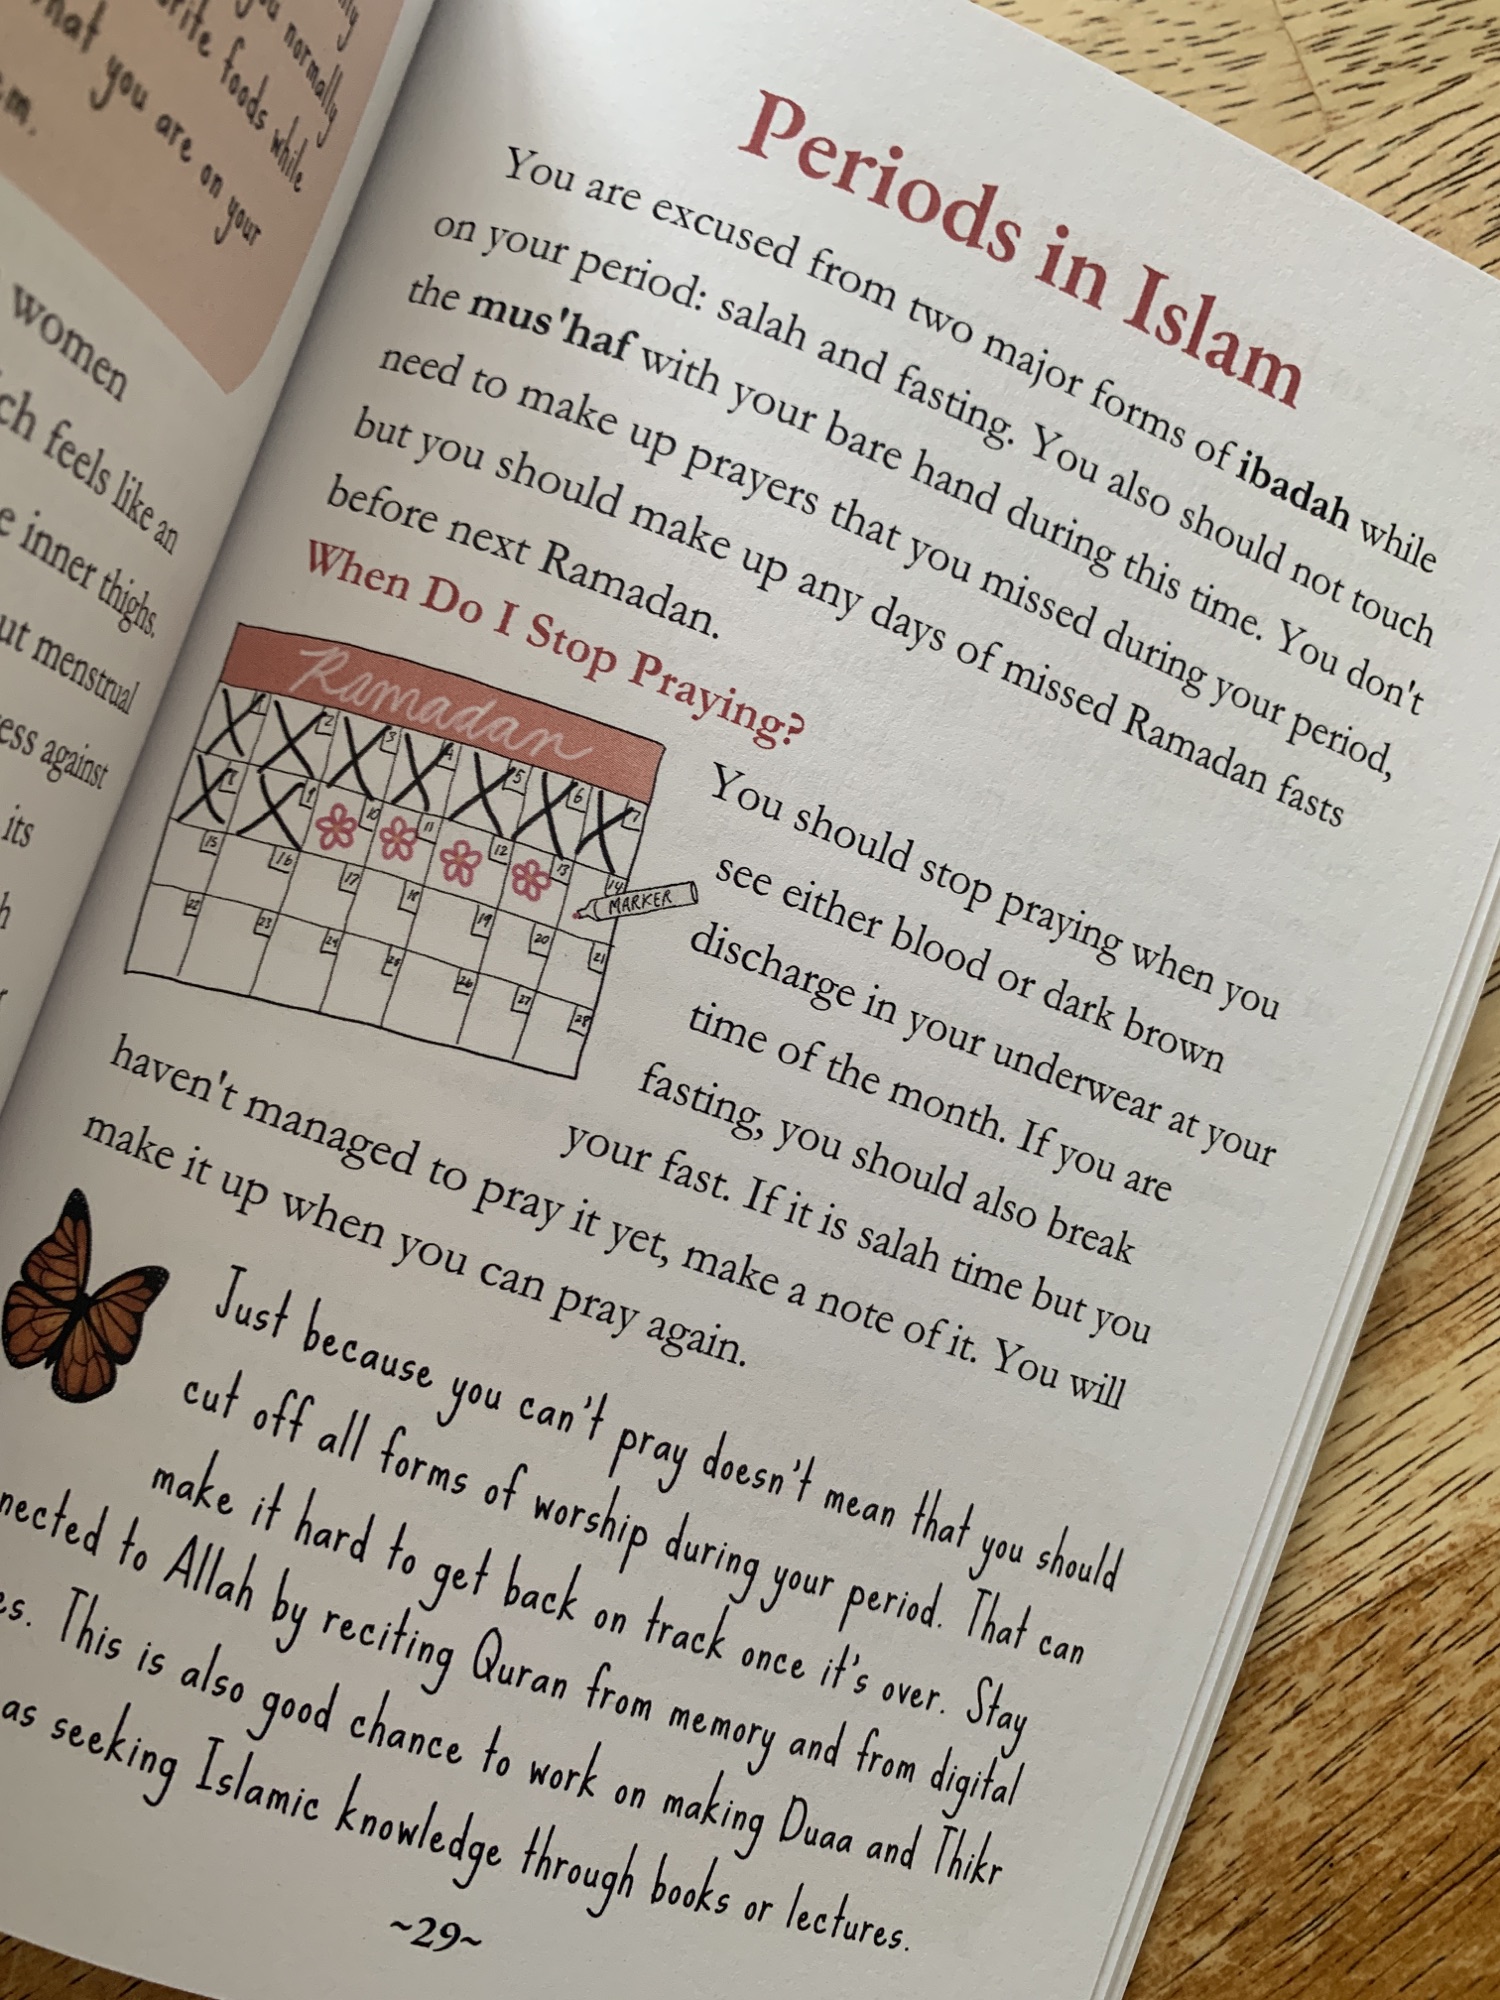 you normally
rite foods while
hat you are on your
em.
women
ch feels like an
e inner thighs.
ut menstrual
ess against
its
h
r
Periods in Islam
You are excused from two major forms of ibadah while
on your period: salah and fasting. You also should not touch
the mus'haf with your bare hand during this time. You don't
need to make up prayers that you missed during your period,
but you should make up any days of missed Ramadan fasts
before next Ramadan.
When Do I Stop Praying?
Ramadan
1 2 3 4 5 6 7
8 9 10 11 12 13 14
15 16 17 18 19 20 21
22 23 24 25 26 27 28
MARKER
You should stop praying when you
see either blood or dark brown
discharge in your underwear at your
time of the month. If you are
fasting, you should also break
your fast. If it is salah time but you
haven't managed to pray it yet, make a note of it. You will
make it up when you can pray again.
Just because you can't pray doesn't mean that you should
cut off all forms of worship during your period. That can
make it hard to get back on track once it's over. Stay
nected to Allah by reciting Quran from memory and from digital
es. This is also good chance to work on making Duaa and Thikr
as seeking Islamic knowledge through books or lectures.
~29~